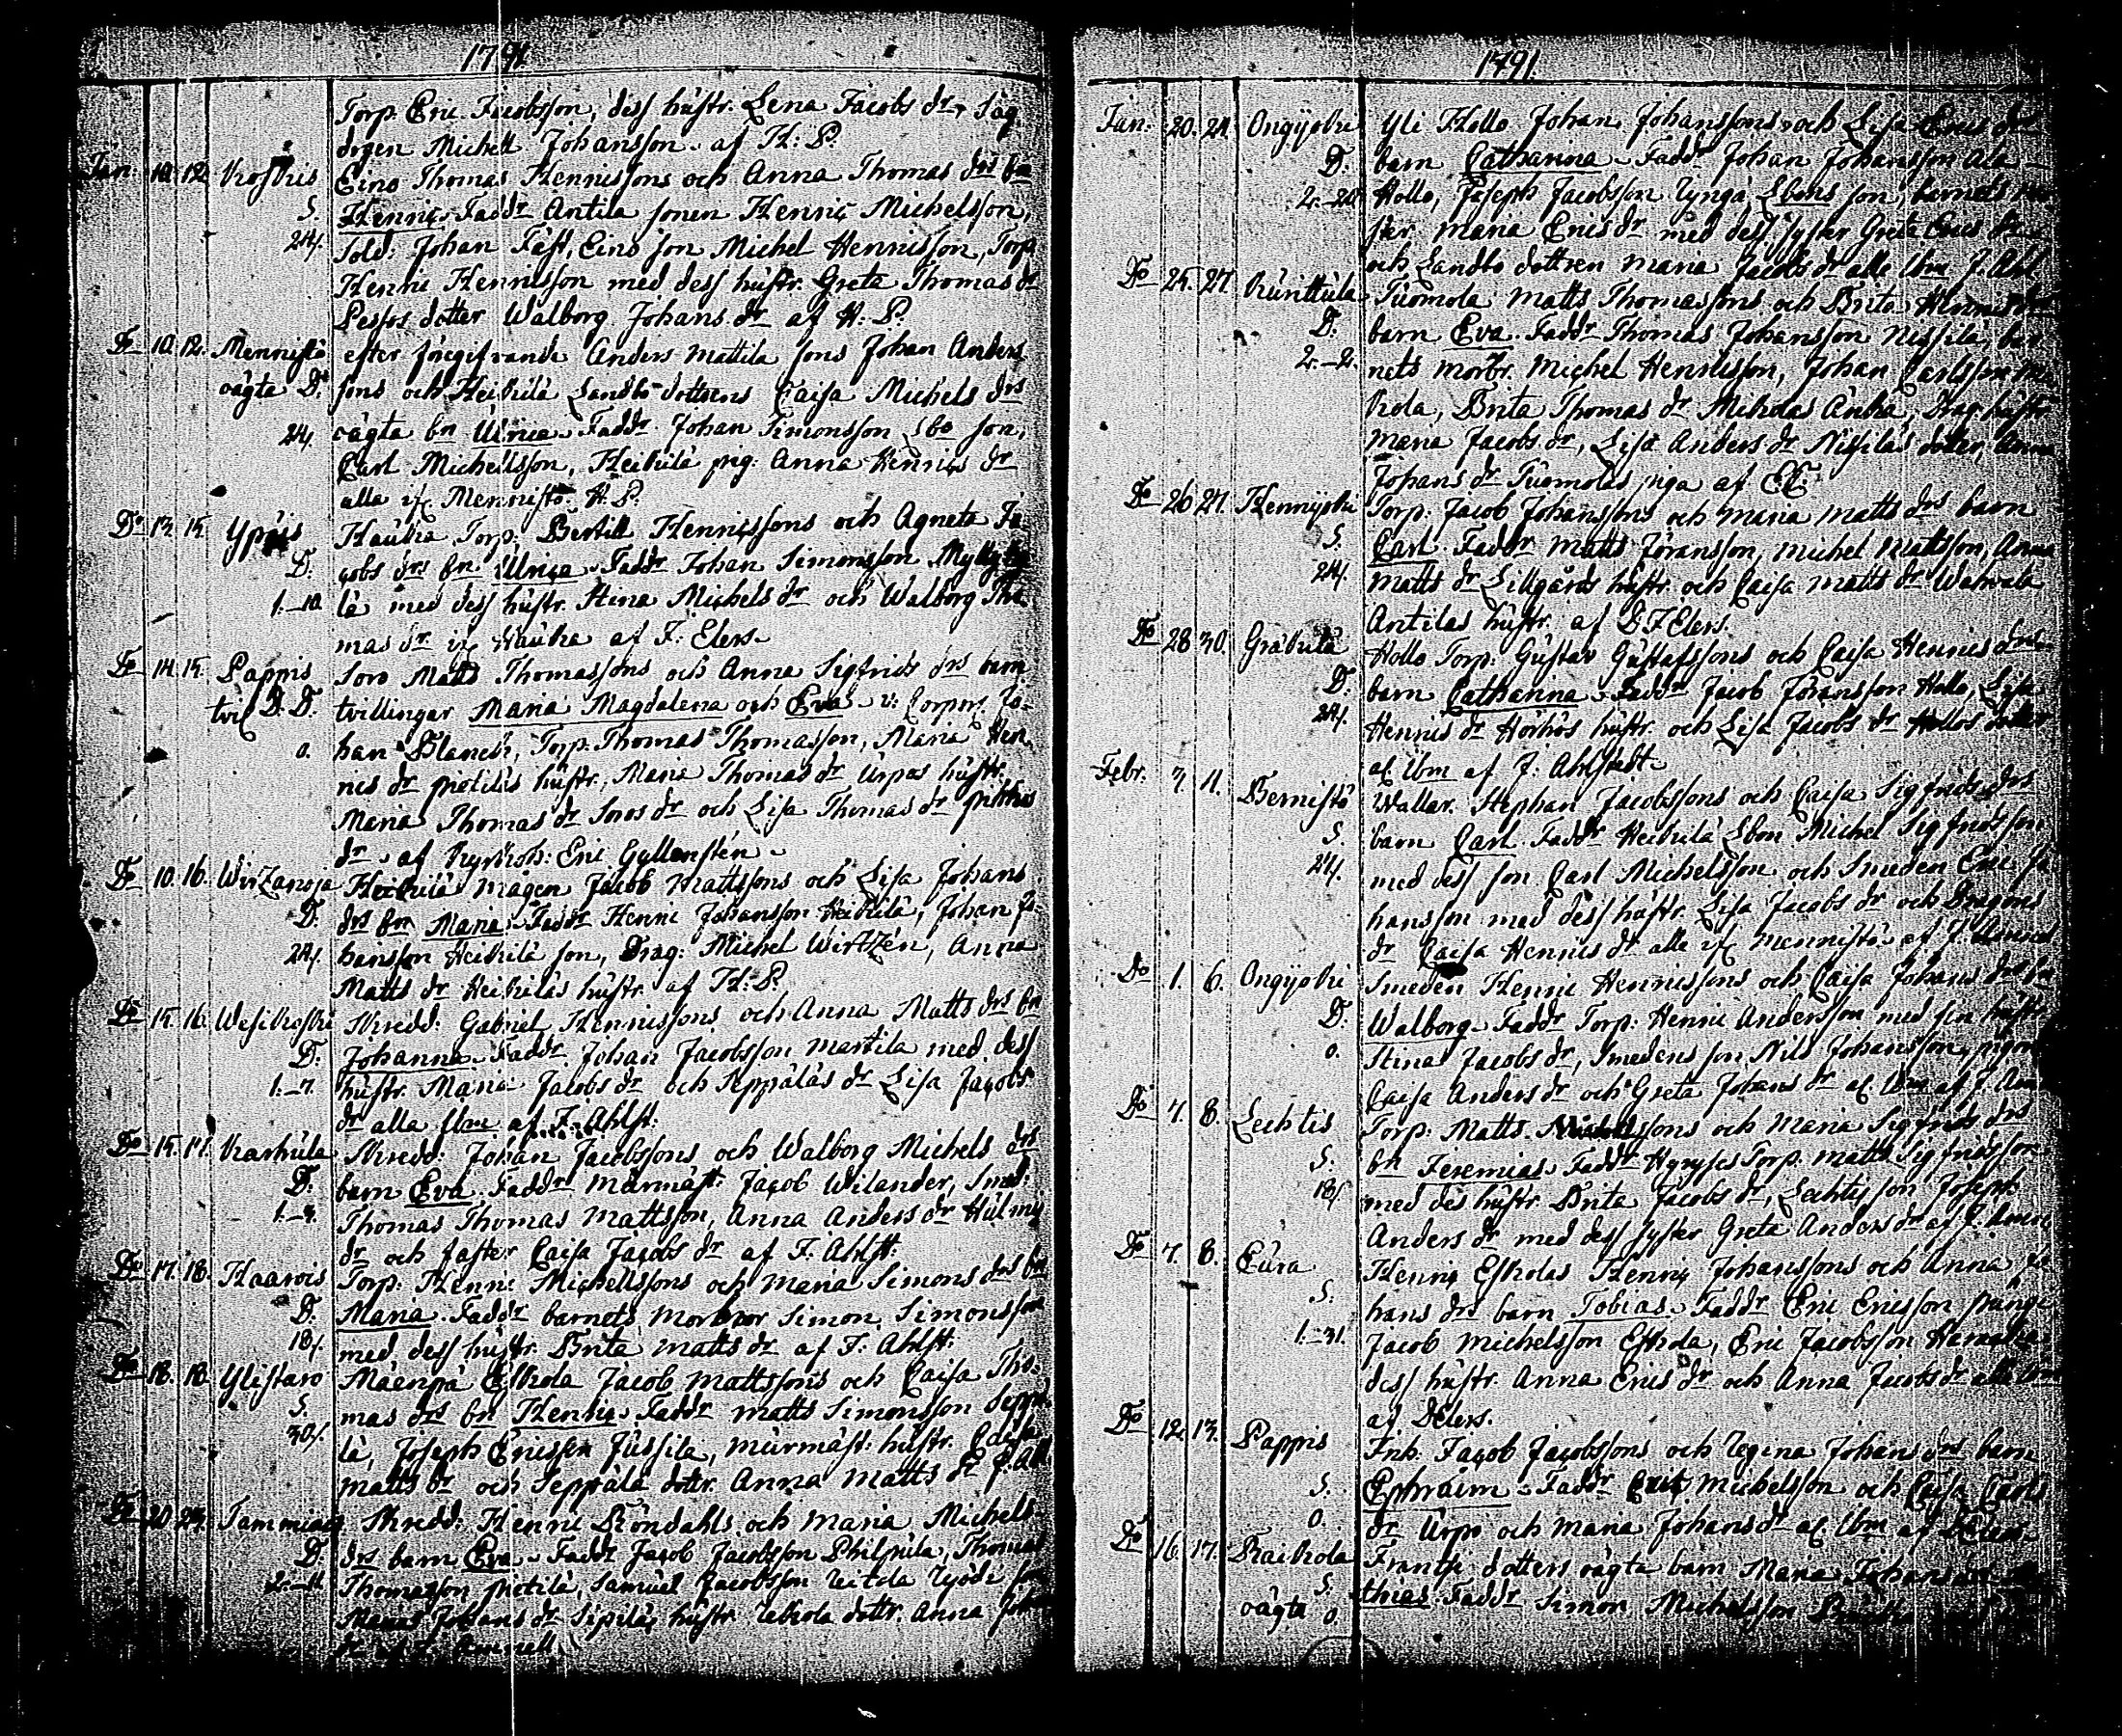 1791
Torp. Eric Jacobsson, dess hustr. Lena Jacobs dr, Såg
drgen Michell Johansson af H: P.
Jan. 10. 12. Kroskis Eino Thomas Hennissons och Anna Thomas drs bn
S. Henric. Faddr Antila sonen Henric Michelsson,
24/. Sold: Johan Fast, Eino son Michel Hennisson, Torp.
Henric Hennisson med dess hustr. Greta Thomas dr
Pessos dotter Walborg Johans dr af H: P.
Do 10. 12. Mennistö efter föregifvande Anders Mattila sons Johan Anders
oägta D: sons och Heikilä Landbo dottrens Caisa Michels drs
24/. oägta bn Ulrica. Faddr Johan Simonsson Lbo son,
Carl Michellsson, Heikilä pig: Anna Henrics dr
alla if Mennistö H: P.
Do 13. 15. Ypäis Hauka Torp: Bertill Hennissons och Agneta Ja-
D. cobs drs bn Ulrica. Faddr Johan Simonsson Mylly
1.-10. lä med dess hustr. Stina Michels dr och Walborg Tho-
mas dr if Hauka af F: Elers.
Do 14. 15. Pappis Soro Matts Thomassons och Anna Sigfrids drs barn
tvil D. D. tvillingar Maria Magdalena och Eva. v: Corpor. Jo-
0. han Blanch, Torp. Thomas Thomasson, Maria Hen-
nics dr pietiläs hustr., Maria Thomas dr Urpos hustr.
Maria Thomas dr Soros dr och Lisa Thomas dr
dr af Kyrkoh: Eric Gyllenstén.
Do 10. 16. Wirtzanoja Heikilä mågen Jacob Mattssons och Lisa Johans
D. drs bn Maria. Faddr Henric Johansson Heikilä, Johan Jo-
24/. hansson Heikilä son, Drag: Michel Wirtzén, Anna
Matts dr Heikiläs hustr. af H: P.
Do 15. 16. Wesikoski Skredd: Gabriel Hennissons och Anna Matts drs bn
D. Johanna. Faddr Johan Jacobsson Martila med dess
1.-7. hustr. Maria Jacobs dr och Seppäläs dr Lisa Jacobs
dr alla ibm af F: Ahlst:
Do 15. 17. Karhula Skredd: Johan Jacobssons och Walborg Michels drs
D. barn Eva. Faddr Murmäst: Jacob Wilander, Smed:
1.-3. Thomas Thomas Mattsson, Anna Anders dr
dr och faster Caisa Jacobs dr af F. Ahlst:
Do 17. 18. Haarois Torp: Henric Michellssons och Maria Simons drs bn
D. Maria. Faddr barnets morbror Simon Simonsson
18/. med dess hustr. Brita Matts dr af F. Ahlst:
Do 18. 18. Ylistaro Mäenpä Eskola Jacob Mattssons och Caisa Tho-
S. mas drs bn Henric. Faddr Matts Simonsson Seppä-
30/. lä, Joseph Ericsson Jussila, murmäst: hustr. Caisa
Matts dr och Seppälä dottr. Anna Matts dr F. Ahl
Do 20. 23. Tammiais Skredd: Henric Röndahls och Maria Michels
D. drs barn Eva. Faddr Jacob Jacobsson Philpula, Thomas
2.-11. Thomasson pietilä, Samuel Jacobsson
Maria Johans dr Sipiläs hustr. dottr. Anna
1791.
Jan. 20. 24. Ongijoki Yli Hollo Johan Johanssons och Lisa Erics drs
D. barn Catharina. Faddr Johan Johansson Ala-
2.-20. Hollo, Joseph Jacobsson Lbons son, barnets
ster Maria Erics dr med dess syster Greta Erics dr
och Landbo dottren Maria Jacobs dr alla ibm F. Ahl
Do 25. 27. Kunttula Tuomola Matts Thomassons och Brita
D. barn Eva. Faddr Thomas Johansson Nissilä, bar
2.-2. nets morbr. Michel Henricsson, Johan Carlsson
kola, Brita Thomas dr Mikolas Änka, Drag. hustr
Maria Jacobs dr, Lisa Anders dr Nissiläs dotter, Anna
Johans dr Tuomolas piga af
Do 26. 27. Hennijoki Torp: Jacob Johanssons och Maria Matts drs barn
S. Carl. Faddr Matts Göransson, Michel Mattsson, Anna
24/. Matts dr Lillgårds hustr. och Caisa Matts dr
Antilas hustr. af D. F. Elers.
Do 28. 30. Gräkilä Hollo Torp: Gustav Gustafssons och Caisa Henrics drs
D. barn Catharina. Faddr Jacob Göransson Hollo, Lisa
24/. Henrics dr hustr. och Lisa Jacobs dr Hollos dotter
al. ibm af J: Ahlstedt
Febr. 3. 4. Bemistö Wallar. Stephan Jacobssons och Caisa Sigfrids drs
S. barn Carl. Faddr Heikilä Lbon Michel Sigfridsson
24/. med dess son Carl Michelsson och Smeden Eric Jo
hansson med dess hustr. Lisa Jacobs dr och Dragons
dr Caisa Henrics dr alle if Mennistö af
Do 1. 6. Ongijoki Smeden Henric Henricssons och Caisa Johans drs bn
D. Walborg. Faddr Torp: Henric Andersson med sin hustr
0. Stina Jacobs dr, Smedens son Nils Johansson, pigan
Caisa Anders dr och Greta Johans dr al. ibm af
Do 7. 8. Lechtis Torp: Matts sons och Maria Sigfrids drs
S. bn Jeremias. Faddr Torp: Matts Sigfridsson
18/. med des hustr. Brita Jacobs dr, Lechtis son Joseph
Anders dr med dess syster Greta Anders dr af
Do 7. 8. Eura Henric Eskolas Henric Johanssons och Anna Jo
S. hans drs barn Tobias. Faddr Eric Ericsson
1.-31. Jacob Michelsson Eskola, Eric Jacobsson
dess hustr. Anna Erics dr och Anna Jacobs dr alla ibm
af DElers.
Do 12. 13. Pappis Inh. Jacob Jacobssons och Regina Johans drs barn
S. Ephraim. Faddr Eric Michelsson och Caisa Carls
0. dr Urpo och Maria Johans dr al. ibm af
Do 16. 17. Raikola Frantsi dotters oägta barn Maria Johans drs
S. thias. Faddr Simon Michelsson
oägta 0.